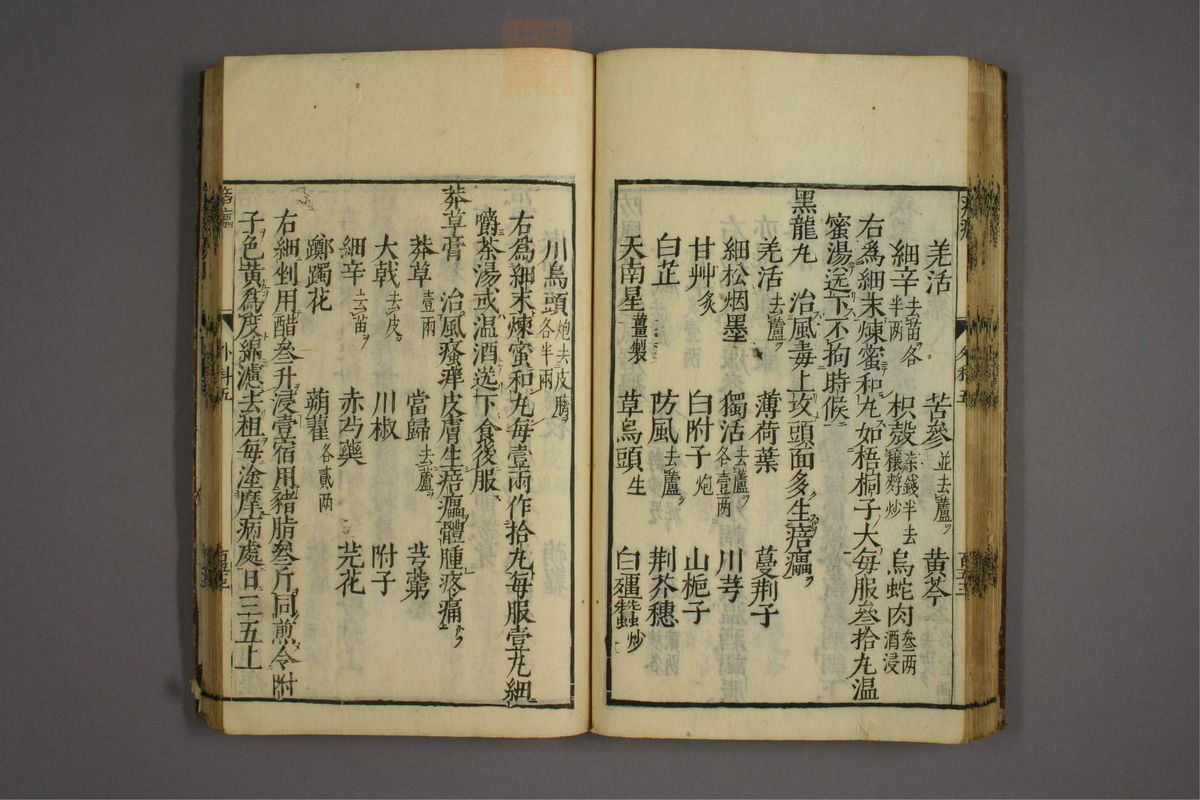 羌活 苦參並去蘆 黃芩
細辛去苗各半两 枳殼柒錢半去穰麸炒 烏蛇肉叁两酒浸
右爲細末煉蜜和丸如梧桐子大每服叁拾丸温
蜜湯送下不拘時候
黑龍丸 治風毒上攻頭面多生㾦㿔
羌活去蘆 薄荷葉 蔓荆子
細松烟墨 獨活去蘆各壹两 川芎
甘艸炙 白附子炮 山梔子
白芷 防風去蘆 荆芥穗
天南星薑製 草烏頭生 白殭蠶炒
川烏頭炮去皮臍各半兩
右爲細末煉蜜和丸每壹兩作拾丸每服壹丸細
嚼茶湯或温酒送下食後服
莽草膏 治風瘙痒皮膚生㾦㿔體腫疼痛
莽草壹兩 當歸去蘆 芎藭
大戟去皮 川椒 附子
細辛去苗 赤芍藥 芫花
躑躅花 蒴藋各貳两
右細剉用醋叁升浸壹宿用豬脂叁斤同煎令附
子色黃爲度綿濾去柤每塗摩病處日三五上